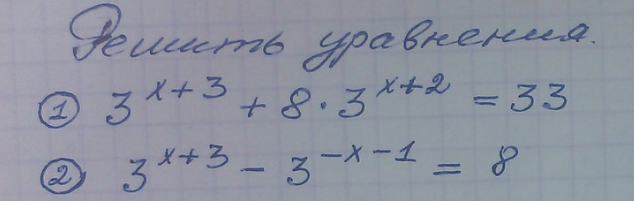 Решить уравнения.
① 3^{x+3} + 8·3^{x+2} = 33
② 3^{x+3} - 3^{-x-1} = 8